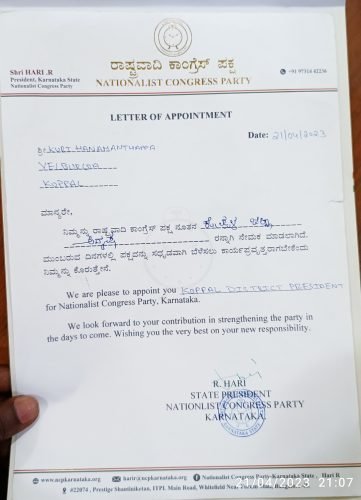 ರಾಷ್ಟ್ರವಾದಿ ಕಾಂಗ್ರೆಸ್ ಪಕ್ಷ
NATIONALIST CONGRESS PARTY
Shri HARI .R
President, Karnataka State
Nationalist Congress Party
+91 97316 42236
LETTER OF APPOINTMENT
Date: 21/04/2023
Sri KURI HANAMANTHAPPA
YELBURGA
KOPPAL
ಮಾನ್ಯರೇ,
ನಿಮ್ಮನ್ನು ರಾಷ್ಟ್ರವಾದಿ ಕಾಂಗ್ರೆಸ್ ಪಕ್ಷ ನೂತನ ಕೊಪ್ಪಳ ಜಿಲ್ಲಾ
ಅಧ್ಯಕ್ಷ ರನ್ನಾಗಿ ನೇಮಕ ಮಾಡಲಾಗಿದೆ.
ಮುಂಬರುವ ದಿನಗಳಲ್ಲಿ ಪಕ್ಷವನ್ನು ಸದೃಢವಾಗಿ ಬೆಳೆಸಲು ಕಾರ್ಯಪ್ರವೃತ್ತರಾಗಬೇಕೆಂದು
ನಿಮ್ಮನ್ನು ಕೋರುತ್ತೇನೆ.
We are please to appoint you KOPPAL DISTRICT PRESIDENT
for Nationalist Congress Party, Karnataka.
We look forward to your contribution in strengthening the party in
the days to come. Wishing you the very best on your new responsibility.
R. HARI
STATE PRESIDENT
NATIONALIST CONGRESS PARTY
KARNATAKA.
21/04/2023 21:07
www.ncpkarnataka.org harir@ncpkarnataka.org Nationalist Congress Party-Karnataka State Hari R
#22074 , Prestige Shantiniketan, ITPL Main Road, Whitefield